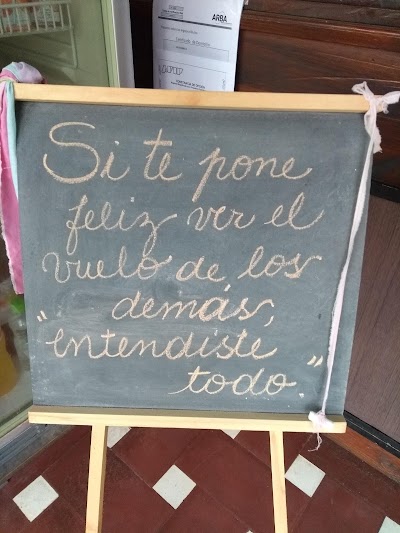 ARBA
Si te pone
feliz ver el
vuelo de los
demás,
"entendiste
todo."